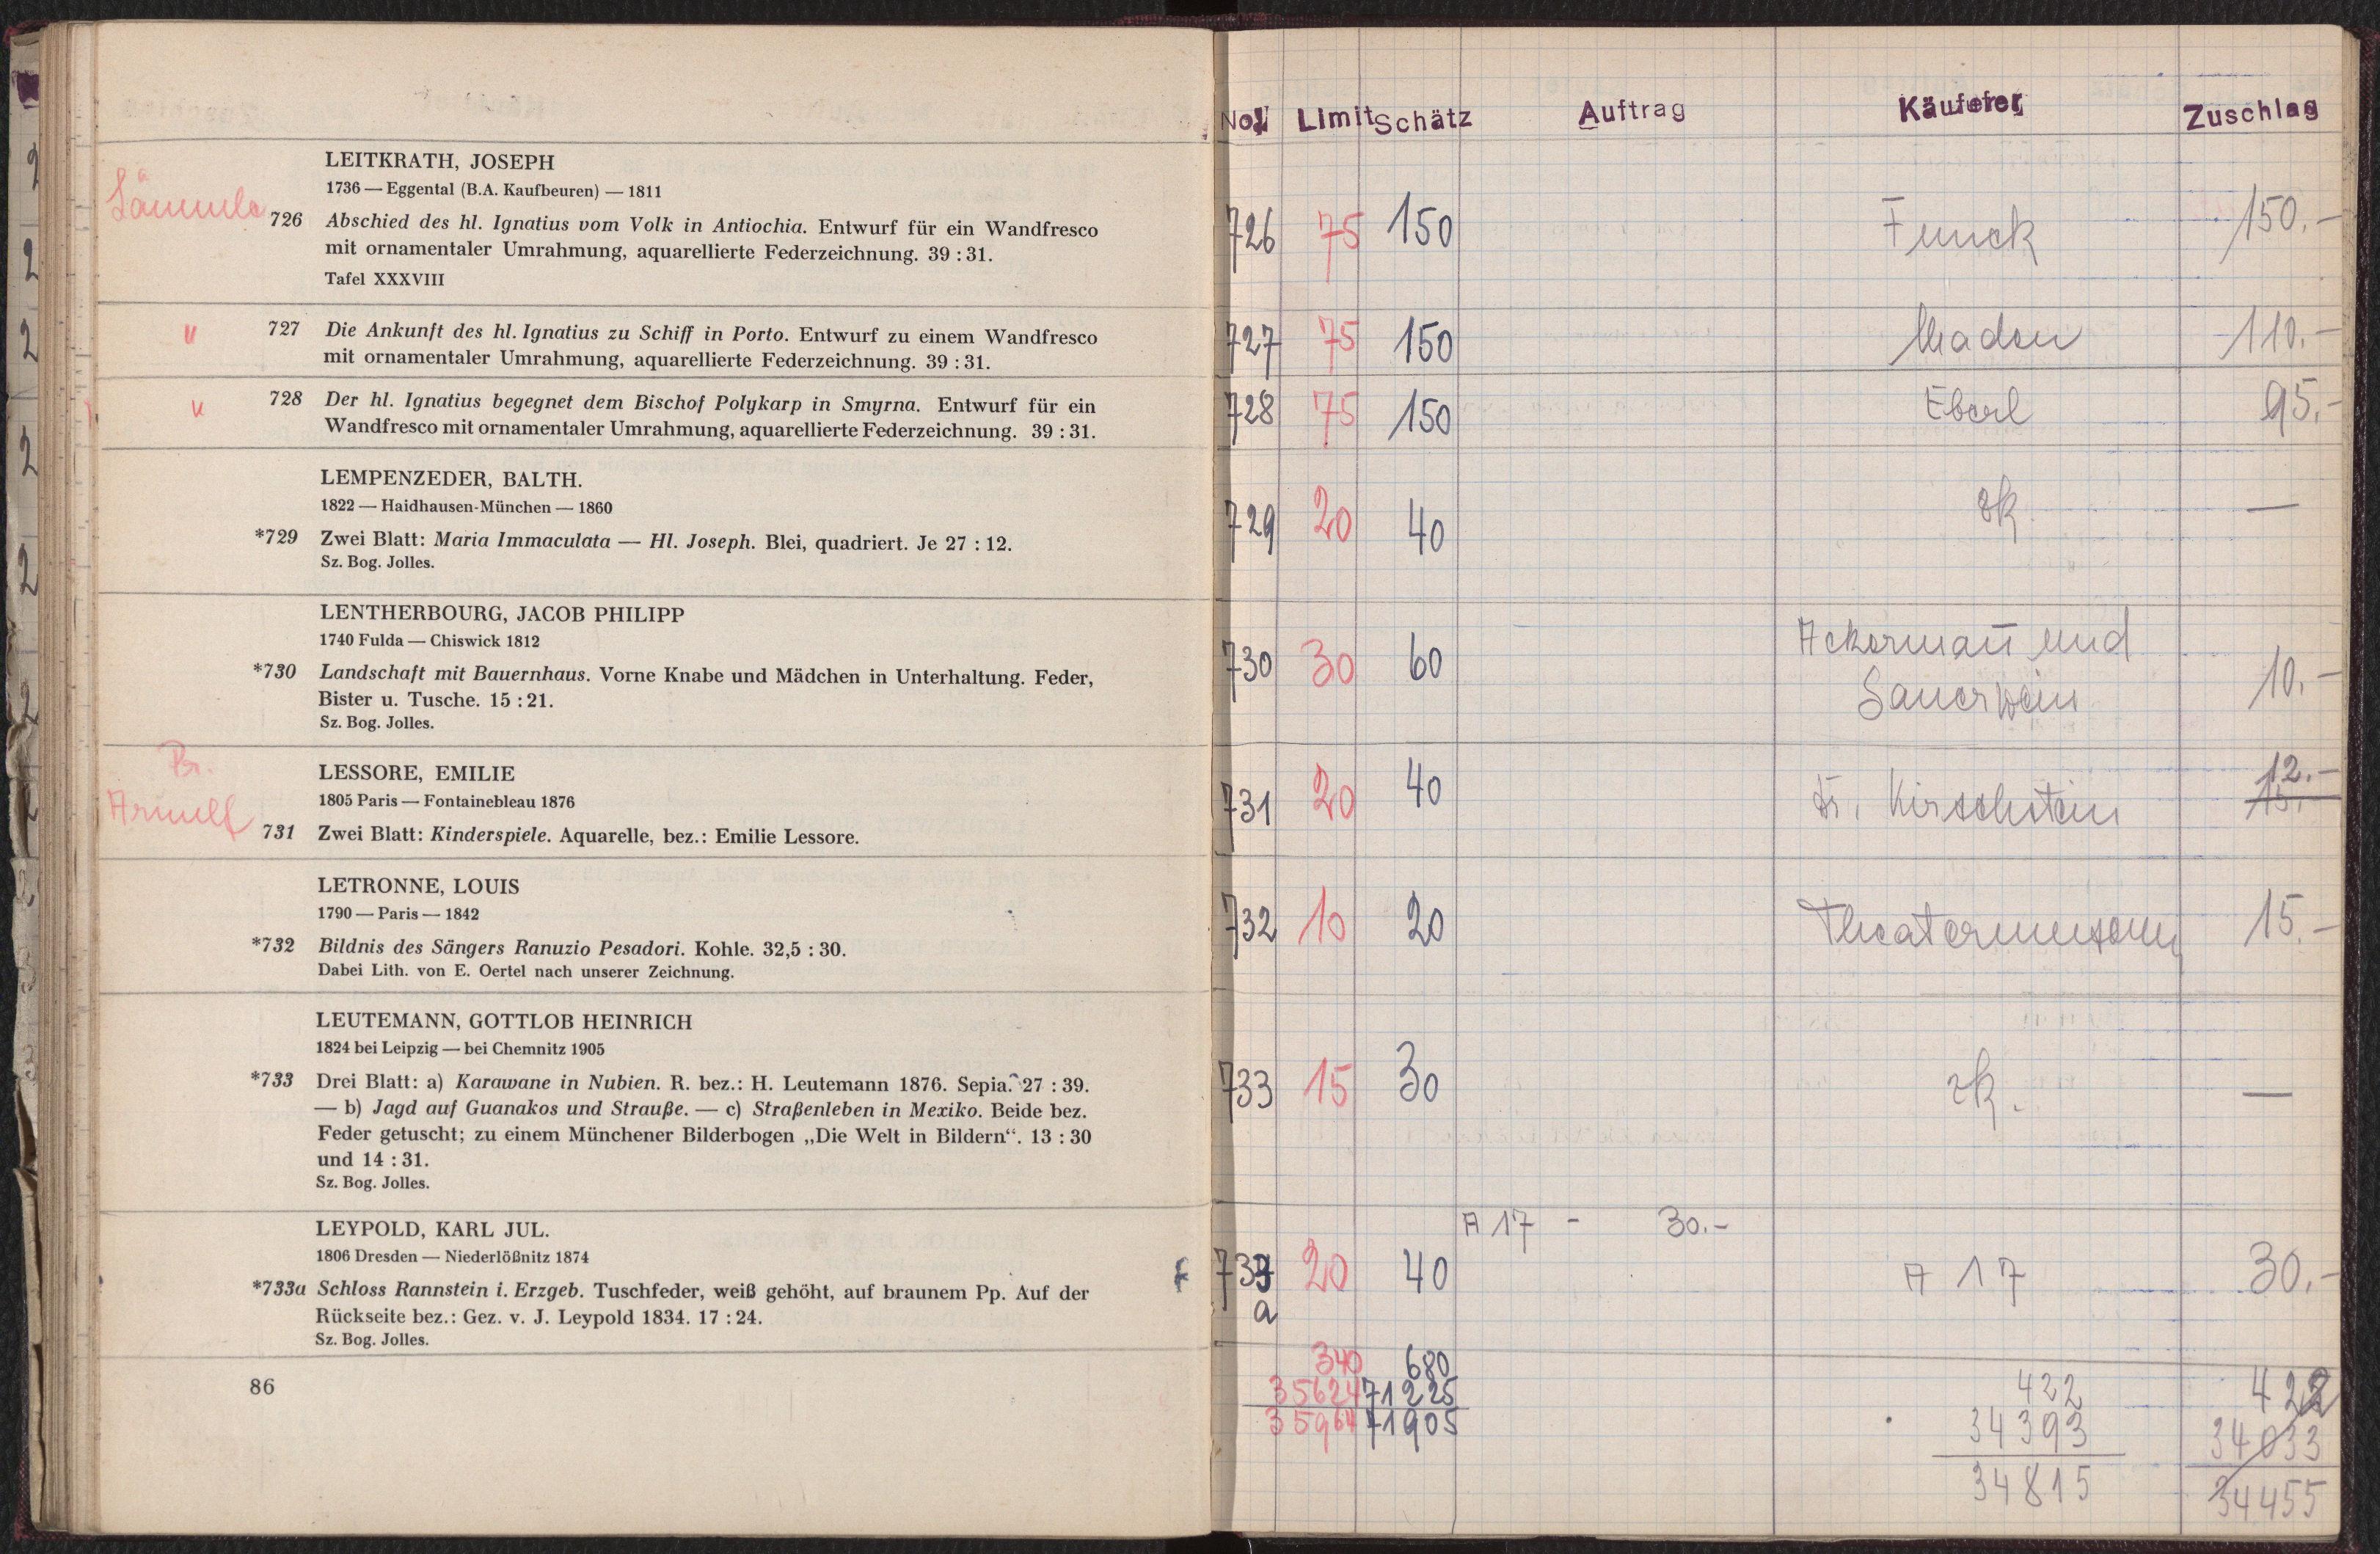 LEITKRATH, JOSEPH
1736 — Eggental (B.A. Kaufbeuren) — 1811
726 Abschied des hl. Ignatius vom Volk in Antiochia. Entwurf für ein Wandfresco
mit ornamentaler Umrahmung, aquarellierte Federzeichnung. 39 : 31.
Tafel XXXVIII
727 Die Ankunft des hl. Ignatius zu Schiff in Porto. Entwurf zu einem Wandfresco
mit ornamentaler Umrahmung, aquarellierte Federzeichnung. 39 : 31.
728 Der hl. Ignatius begegnet dem Bischof Polykarp in Smyrna. Entwurf für ein
Wandfresco mit ornamentaler Umrahmung, aquarellierte Federzeichnung. 39 : 31.
LEMPENZEDER, BALTH.
1822 — Haidhausen-München — 1860
*729 Zwei Blatt: Maria Immaculata — Hl. Joseph. Blei, quadriert. Je 27 : 12.
Sz. Bog. Jolles.
LENTHERBOURG, JACOB PHILIPP
1740 Fulda — Chiswick 1812
*730 Landschaft mit Bauernhaus. Vorne Knabe und Mädchen in Unterhaltung. Feder,
Bister u. Tusche. 15 : 21.
Sz. Bog. Jolles.
LESSORE, EMILIE
1805 Paris — Fontainebleau 1876
731 Zwei Blatt: Kinderspiele. Aquarelle, bez.: Emilie Lessore.
LETRONNE, LOUIS
1790 — Paris — 1842
*732 Bildnis des Sängers Ranuzio Pesadori. Kohle. 32,5 : 30.
Dabei Lith. von E. Oertel nach unserer Zeichnung.
LEUTEMANN, GOTTLOB HEINRICH
1824 bei Leipzig — bei Chemnitz 1905
*733 Drei Blatt: a) Karawane in Nubien. R. bez.: H. Leutemann 1876. Sepia. 27 : 39.
— b) Jagd auf Guanakos und Strauße. — c) Straßenleben in Mexiko. Beide bez.
Feder getuscht; zu einem Münchener Bilderbogen „Die Welt in Bildern“. 13 : 30
und 14 : 31.
Sz. Bog. Jolles.
LEYPOLD, KARL JUL.
1806 Dresden — Niederlößnitz 1874
*733a Schloss Rannstein i. Erzgeb. Tuschfeder, weiß gehöht, auf braunem Pp. Auf der
Rückseite bez.: Gez. v. J. Leypold 1834. 17 : 24.
Sz. Bog. Jolles.
86
Limit Schätz Auftrag Käufer Zuschlag
726 75 150 Funck 150.-
727 75 150 110.-
728 75 150 Eberl 95.-
729 20 40 zk. —
730 30 60 Ackermañ und
Sauerwein 10.-
731 20 40 Dr. Kirschstein 12.-
15.-
732 10 20 Theatermuseum 15.-
733 15 30 zk. —
A 17 - 30.-
733 20 40 A 17 30.-
a
340 680
35624 71225 422 422
35964 71905 34393 34033
34815 34455